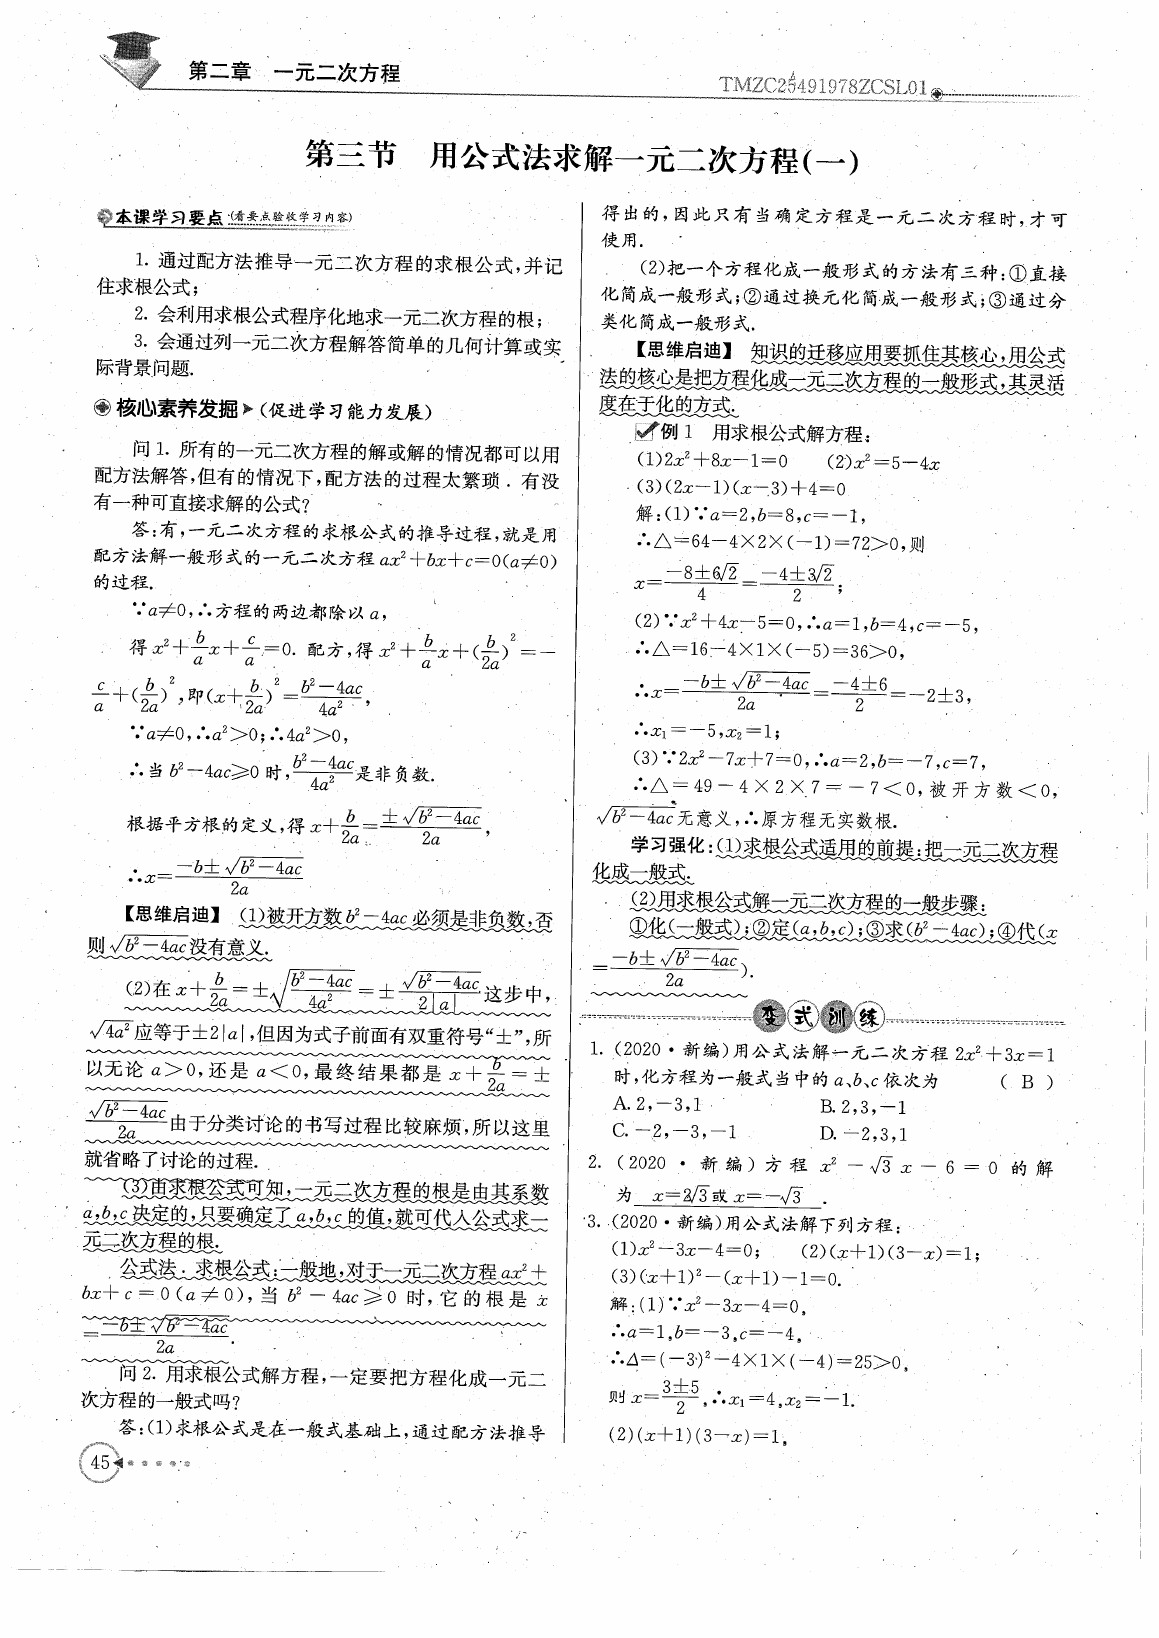 第二章　一元二次方程
TMZC25491978ZCSL01
第三节　用公式法求解一元二次方程(一)
本课学习要点(看要点验收学习内容)
1. 通过配方法推导一元二次方程的求根公式,并记
住求根公式;
2. 会利用求根公式程序化地求一元二次方程的根;
3. 会通过列一元二次方程解答简单的几何计算或实
际背景问题.
核心素养发掘(促进学习能力发展)
问 1. 所有的一元二次方程的解或解的情况都可以用
配方法解答,但有的情况下,配方法的过程太繁琐. 有没
有一种可直接求解的公式?
答:有,一元二次方程的求根公式的推导过程,就是用
配方法解一般形式的一元二次方程 ax²+bx+c=0(a≠0)
的过程.
∵a≠0,∴方程的两边都除以 a,
得 x²+b/a x+c/a=0. 配方,得 x²+b/a x+(b/2a)²=-
c/a+(b/2a)²,即(x+b/2a)²=(b²-4ac)/4a²,
∵a≠0,∴a²>0;∴4a²>0,
∴当 b²-4ac≥0 时,(b²-4ac)/4a²是非负数.
根据平方根的定义,得 x+b/2a=±√(b²-4ac)/2a,
∴x=(-b±√(b²-4ac))/2a
【思维启迪】 (1)被开方数 b²-4ac 必须是非负数,否
则√(b²-4ac)没有意义.
(2)在 x+b/2a=±√((b²-4ac)/4a²)=±√(b²-4ac)/2|a|这步中,
√4a²应等于±2|a|,但因为式子前面有双重符号“±”,所
以无论 a>0,还是 a<0,最终结果都是 x+b/2a=±
√(b²-4ac)/2a 由于分类讨论的书写过程比较麻烦,所以这里
就省略了讨论的过程.
(3)由求根公式可知,一元二次方程的根是由其系数
a,b,c 决定的,只要确定了 a,b,c 的值,就可代入公式求一
元二次方程的根.
公式法. 求根公式:一般地,对于一元二次方程 ax²+
bx+c=0(a≠0),当 b²-4ac≥0 时,它的根是 x
=(-b±√(b²-4ac))/2a.
问 2. 用求根公式解方程,一定要把方程化成一元二
次方程的一般式吗?
答:(1)求根公式是在一般式基础上,通过配方法推导
45
得出的,因此只有当确定方程是一元二次方程时,才可
使用.
(2)把一个方程化成一般形式的方法有三种:①直接
化简成一般形式;②通过换元化简成一般形式;③通过分
类化简成一般形式.
【思维启迪】 知识的迁移应用要抓住其核心,用公式
法的核心是把方程化成一元二次方程的一般形式,其灵活
度在于化的方式.
例 1　用求根公式解方程:
(1)2x²+8x-1=0　(2)x²=5-4x
(3)(2x-1)(x-3)+4=0
解:(1)∵a=2,b=8,c=-1,
∴△=64-4×2×(-1)=72>0,则
x=(-8±6√2)/4=(-4±3√2)/2;
(2)∵x²+4x-5=0,∴a=1,b=4,c=-5,
∴△=16-4×1×(-5)=36>0,
∴x=(-b±√(b²-4ac))/2a=(-4±6)/2=-2±3,
∴x₁=-5,x₂=1;
(3)∵2x²-7x+7=0,∴a=2,b=-7,c=7,
∴△=49-4×2×7=-7<0,被开方数<0,
√(b²-4ac)无意义,∴原方程无实数根.
学习强化:(1)求根公式适用的前提:把一元二次方程
化成一般式.
(2)用求根公式解一元二次方程的一般步骤:
①化(一般式);②定(a,b,c);③求(b²-4ac);④代(x
=(-b±√(b²-4ac))/2a).
变式训练
1. (2020·新编)用公式法解一元二次方程 2x²+3x=1
时,化方程为一般式当中的 a、b、c 依次为　( B )
A. 2,-3,1　B. 2,3,-1
C. -2,-3,-1　D. -2,3,1
2. (2020·新编)方程 x²-√3x-6=0 的解
为 x=2√3或 x=-√3 .
3. (2020·新编)用公式法解下列方程:
(1)x²-3x-4=0;　(2)(x+1)(3-x)=1;
(3)(x+1)²-(x+1)-1=0.
解:(1)∵x²-3x-4=0,
∴a=1,b=-3,c=-4,
∴Δ=(-3)²-4×1×(-4)=25>0,
则 x=(3±5)/2,∴x₁=4,x₂=-1.
(2)(x+1)(3-x)=1,